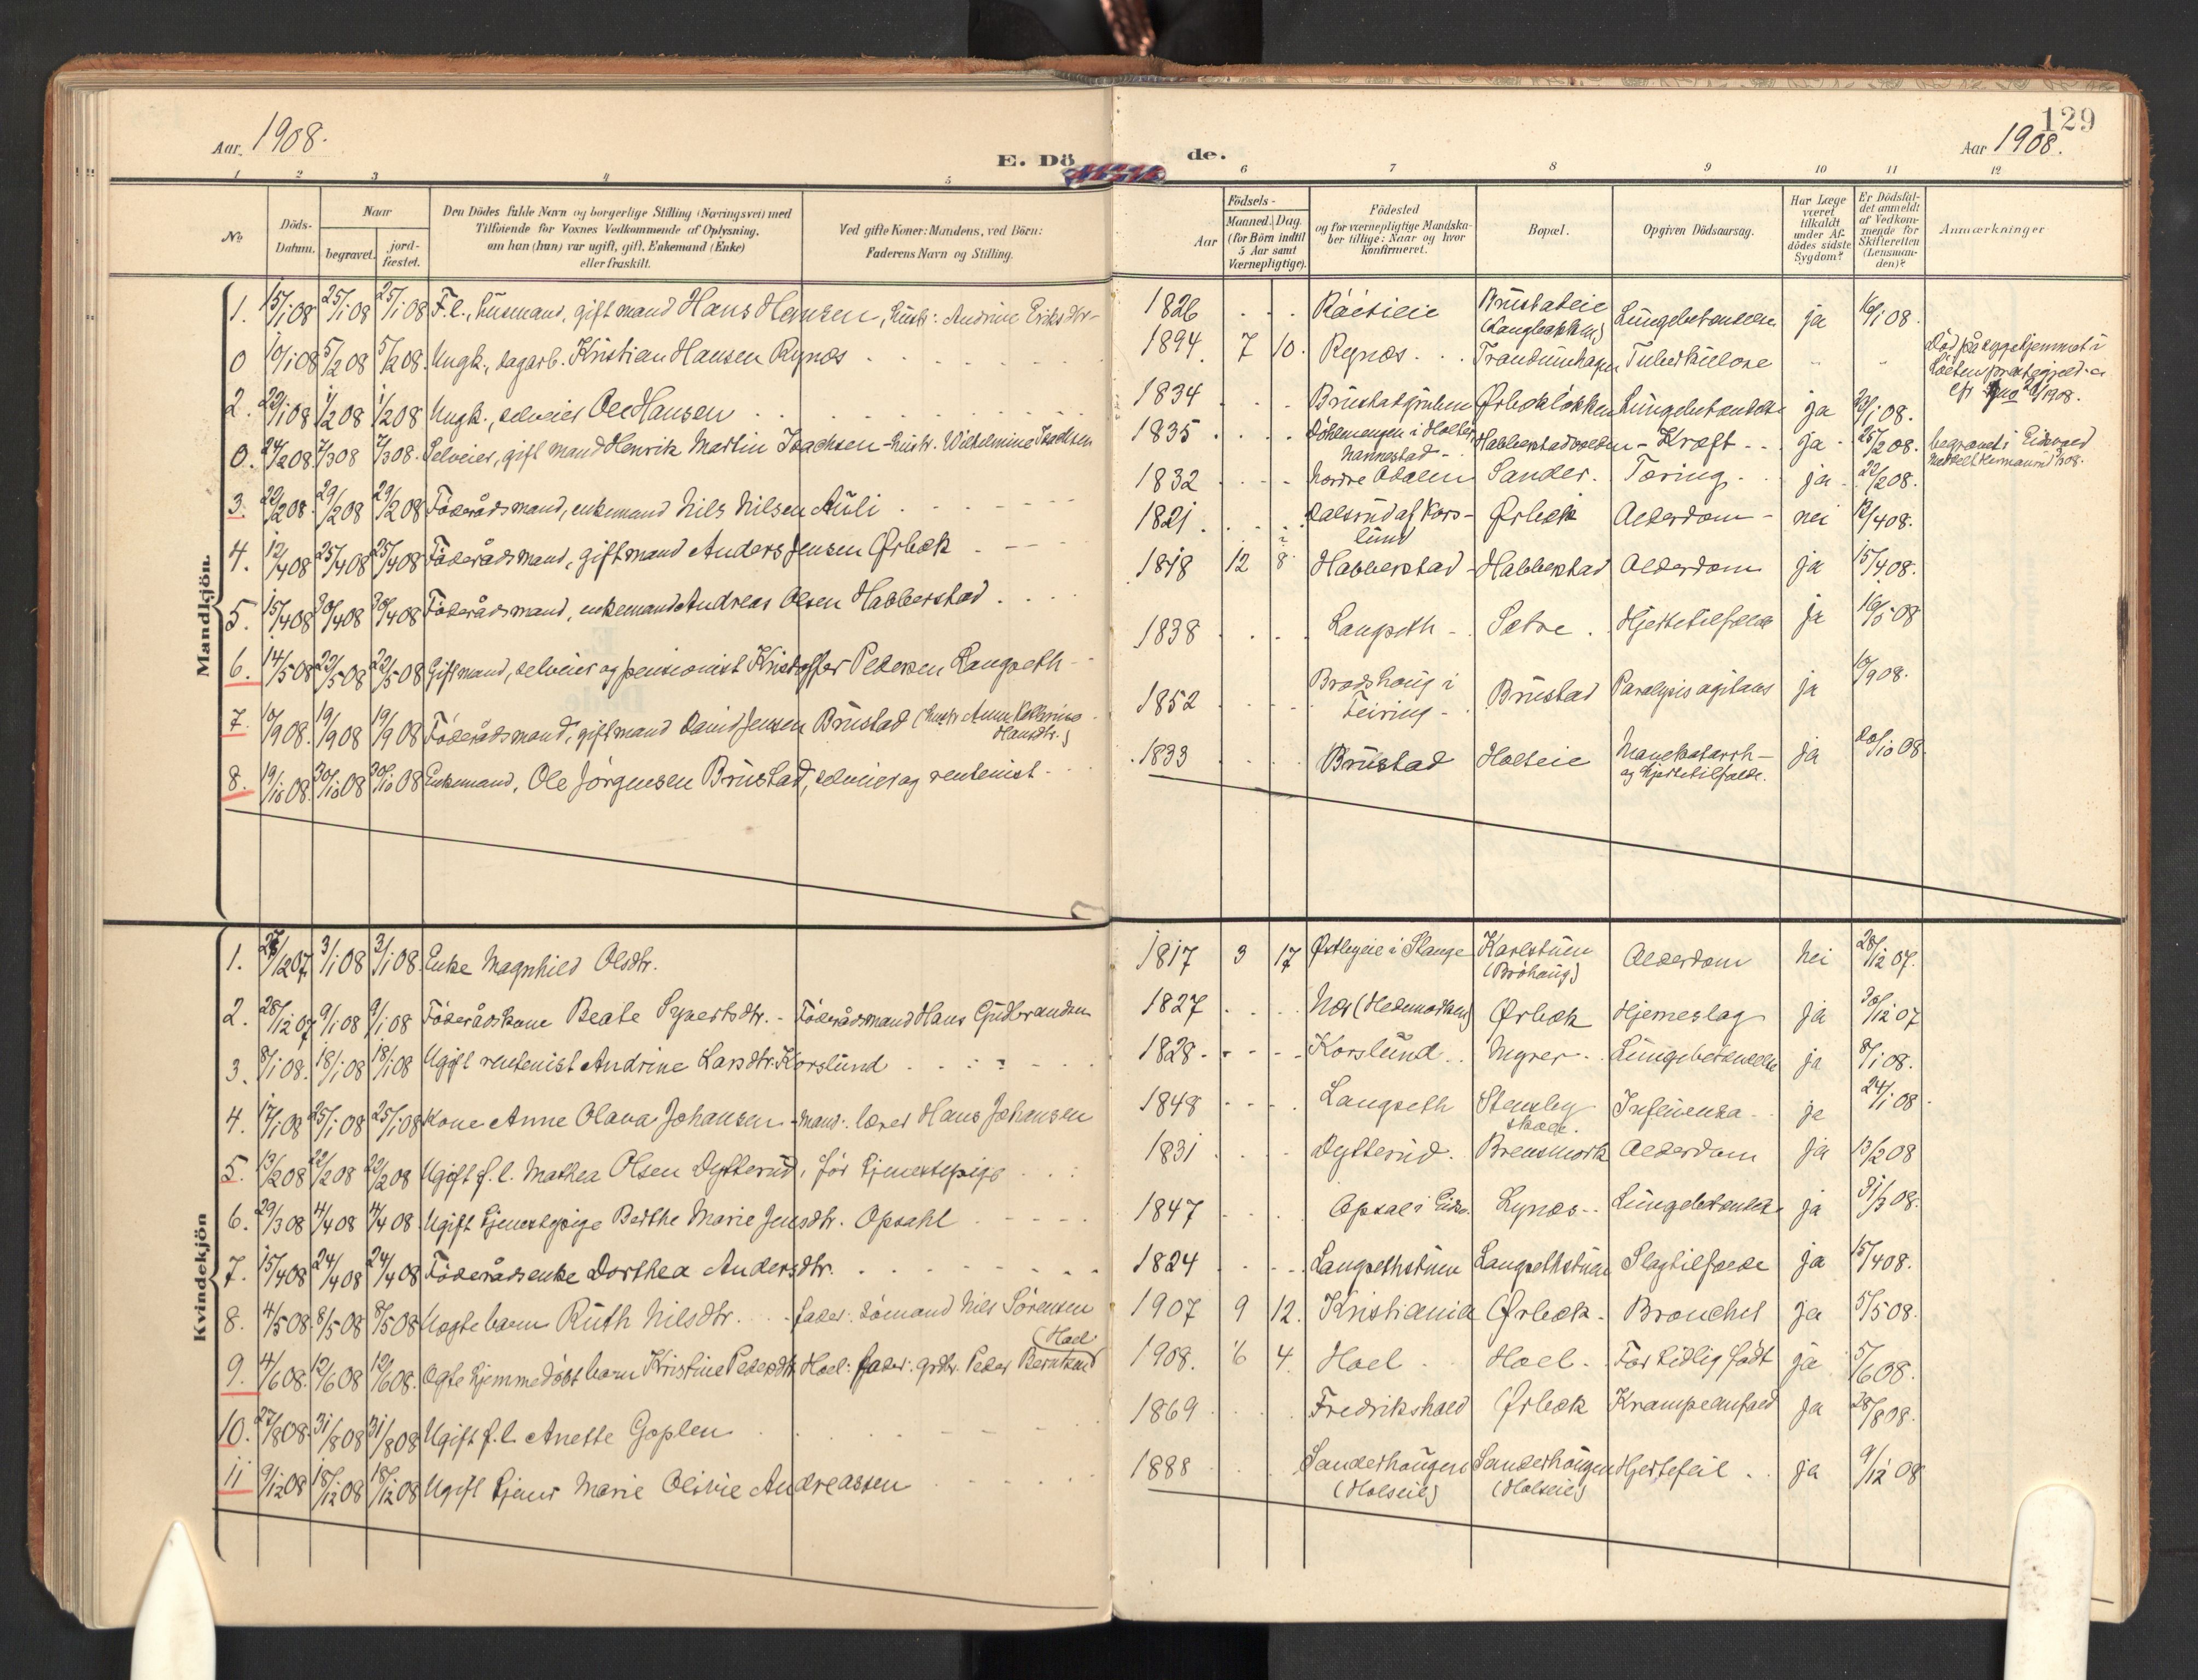 Aar 1908.
E. Dö de.
129
Aar 1908.
1 2 3 4 5 6 7 8 9 10 11 12
No
Döds-Datum.
Naar
begravet.
jord-fæstet.
Den Dödes fulde Navn og borgerlige Stilling (Næringsvei) med
Tilföiende for Voxnes Vedkommende af Oplysning,
om han (hun) var ugift, gift, Enkemand (Enke)
eller fraskilt.
Ved gifte Koner: Mandens, ved Börn:
Faderens Navn og Stilling.
Födsels-
Aar
Maaned. Dag.
(for Börn indtil
5 Aar samt
Værnepligtige).
Födested
og for værnepligtige Mandska-
ber tillige: Naar og hvor
konfirmeret.
Bopæl.
Opgiven Dödsaarsag.
Har Læge
været
tilkaldt
under Af-
dödes sidste
Sygdom?
Er Dödsfal-
det anmeldt
af Vedkom-
mende for
Skifteretten
(Lensman-
den)?
Anmærkninger
Mandkjön.
1. 15/1 08 25/1 08 25/1 08 F.l., husmand, gift mand Hans Hansen, hustr: Andrine Eriksdtr. 1826 Brustadeie (Langbakken) Lungebetændelse ja 16/1 08.
0 10/1 08 5/2 08 5/2 08. Ungk., dagarb. Kristian Hansen Rynæs 1894. 7 10. Rynæs Trandumhagen Tuberkulose Död på sygehjemmet i
2. 22/1 08 1/2 08 1/2 08 Ungk., selveier Ole Hansen 1834 Ørbækløkken Lungebetændelse ja
0. 24/2 08 7/3 08 7/3 08. Selveier, gift mand Henrik Martin Isachsen - hustr. Wilhelmine Isachsen 1835 i Holter, Nannestad Kræft ja 25/2 08. begravet i Eidsvold
3. 22/2 08. 29/2 08 29/2 08 Föderådsmand, enkemand Nils Nilsen Auli 1832 Nordre Odalen Sander. Tæring ja 22/2 08.
4. 12/4 08 25/4 08 25/4 08 Föderådsmand, gift mand Anders Jensen Ørbæk 1821. Dalsrud af Kors-lund Ørbæk Alderdom nei 12/4 08.
5. 15/4 08 30/4 08 30/4 08 Föderådsmand, enkemand Andreas Olsen Habberstad 1818 12 8 Habberstad Habberstad Alderdom ja 15/4 08.
6. 14/5 08 22/5 08 22/5 08 Gift mand, selveier og pensionist Kristoffer Pedersen Langseth 1838 Langseth Sætre. Hjertetilfælde ja 16/5 08
7. 10/9 08. 19/9 08 19/9 08 Föderådsmand, gift mand David Jensen Brustad (hustr. Anne Hansdtr.) 1852 Brødshaug i Feiring Brustad Paralysis agitans ja 10/9 08.
8. 19/10 08. 30/10 08 30/10 08 Enkemand, Ole Jörgensen Brustad, selveier og rentenist 1833 Brustad Holseie Mavekatarrh og Hjertetilfælde. ja 20/10 08
Kvindekjön
1. 27/12 07 3/1 08 3/1 08. Enke Magnhild Olsdtr. 1817 3 17 Østbyeie i Stange Karlstuen (Bröhaug) Alderdom Nei 28/12 07.
2. 28/12 07 9/1 08 9/1 08 Föderådskone Beate Syvertsdtr. - Föderådsmand Hans Gudbrandsen 1827 Nes (Hedemarken) Ørbæk Hjerneslag Ja 30/12 07
3. 8/1 08. 18/1 08 18/1 08 Ugift rentenist Andrine Larsdtr. Korslund 1828 Korslund Myrer Lungebetændelse ja 8/1 08.
4. 17/1 08 25/1 08 25/1 08 Kone Anne Olava Johansen - Mand: lærer Hans Johansen 1848 Langseth Stensby skole. Influenza ja 24/1 08.
5. 13/2 08 22/2 08 22/2 08 Ugift f.l. Mathea Olsen Dytterud, för tjenestepige 1831 Dytterud. Brensmork Alderdom Ja 13/2 08
6. 29/3 08 4/4 08 4/4 08 Ugift tjenestepige Berthe Marie Jensdtr. Opsahl 1847 Opsal i Eidsv. Lynæs Lungebetændelse ja 31/3 08.
7. 15/4 08 24/4 08 24/4 08 Föderådsenke Dorthea Andersdtr. 1824 Langsethstuen Langsethstuen Slagtilfælde ja 15/4 08.
8. 4/5 08. 8/5 08 8/5 08 Uægte barn Ruth Nilsdtr. - fader: Sömand Nils Sörensen 1907 9 12. Kristiania Ørbæk. Bronchit ja 5/5 08.
9. 4/6 08. 12/6 08 12/6 08. Ægte hjemmedöbt barn Kristine Pedersdtr. Hoel: fader: grdbr. Peder Berntsen (Hoel) 1908. 6 4. Hoel Hoel. For tidlig födt ja 5/6 08.
10. 27/8 08. 31/8 08 31/8 08 Ugift f.l. Anette Goplen 1869 Fredrikshald Ørbæk Krampeanfald Ja 28/8 08.
11 9/12 08 18/12 08 18/12 08 Ugift tjener Marie Olivie Andreassen 1888 Sanderhaugen (Holseie) Sanderhaugen (Holseie) Hjertefeil ja 9/12 08